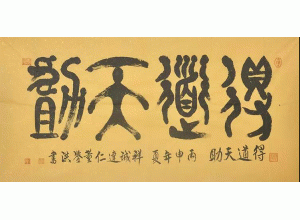 得道天助
得道天助 丙申年夏 祥誠達仁董洪書